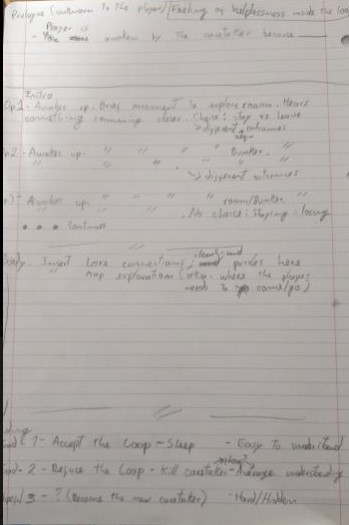 Prologue (unknown to the player) / Feeling of helplessness inside the loop
Player is
- awaken by the caretaker because
Intro
Op.1 - Awakes up. Brief moment to explore rooms. Hears
something comming closer. Choice: stay or leave
> different outcomes
2 - Awakes up. " " " " Bunker.
" "
> different outcomes
- Awakes up. " " " room/Bunker
" " . No choice: Staying
• • • Continues
Insert Lore connections; and here
map explanation ( where the player
needs to go)
1 - Accept the Loop - Sleep - Easy to understand
2 - Refuse the Loop - Kill caretaker - Average understanding
3 - ? (Become the new caretaker) - Hard/Hidden